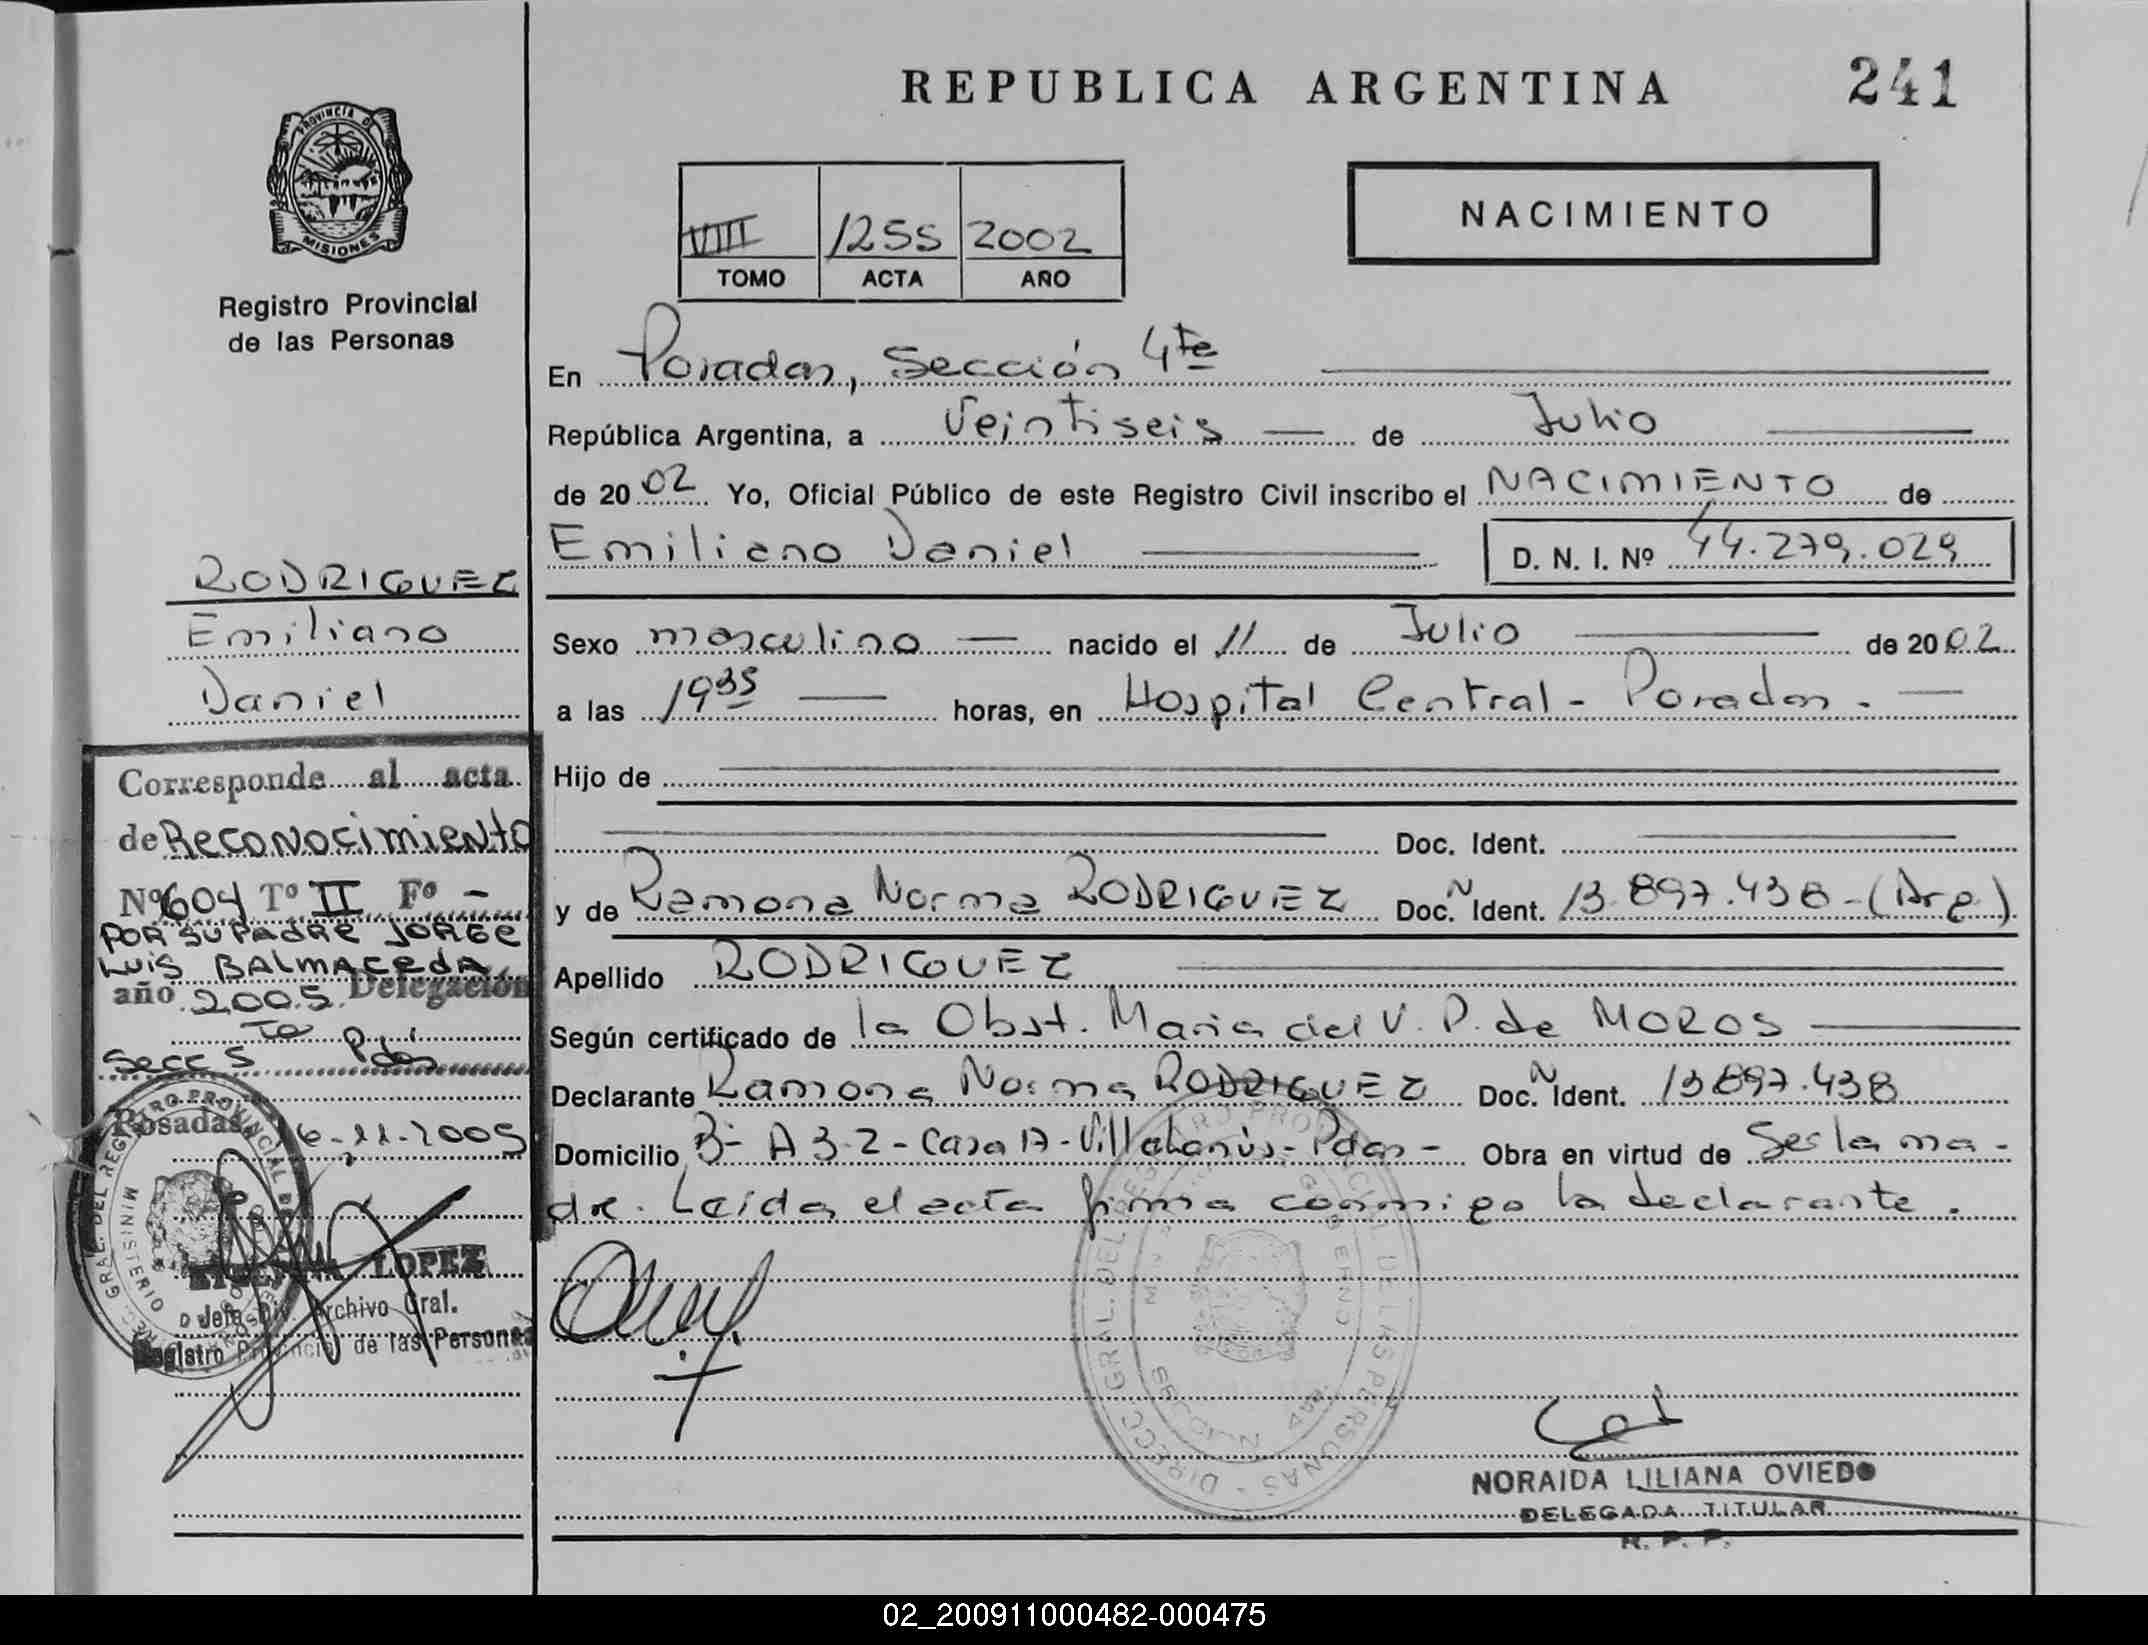 REPUBLICA ARGENTINA
241
PROVINCIA D
MISIONES
Registro Provincial
de las Personas
VIII 1255 2002
TOMO ACTA AÑO
NACIMIENTO
En Posadas, Sección 4ta
República Argentina, a Veintiseis de Julio
de 2002 Yo, Oficial Público de este Registro Civil inscribo el NACIMIENTO de
Emiliano Daniel D. N. I. Nº 44.279.029
Sexo masculino nacido el 11 de Julio de 2002
a las 1935 horas, en Hospital Central - Posadas.
Hijo de
Doc. Ident.
y de Ramona Norma RODRIGUEZ Doc. N Ident. 13.897.438 - (Arg.)
Apellido RODRIGUEZ
Según certificado de la Obst. Maria del V. P. de MOROS
Declarante Ramona Norma RODRIGUEZ Doc. N Ident. 13897.438
Domicilio Bº A 3-2 - Casa 17 - Villalonús - Pdas - Obra en virtud de Ser la ma-
dre. Leída el acta firma conmigo la declarante.
NORAIDA LILIANA OVIEDO
DELEGADA TITULAR
R. P. P.
RODRIGUEZ
Emiliano
Daniel
Corresponde al acta
de Reconocimiento
Nº 604 Tº II Fº -
POR SU PADRE JORGE
LUIS BALMACEDA
año 2005 Delegación
Secc 5ta Pdas
Posadas, 16-11-2005
LOPEZ
Jefa Div. Archivo Gral.
Registro Provincial de las Personas
DIRECC. GRAL. DEL REGISTRO PROVINCIAL DE LAS PERSONAS
02_200911000482-000475